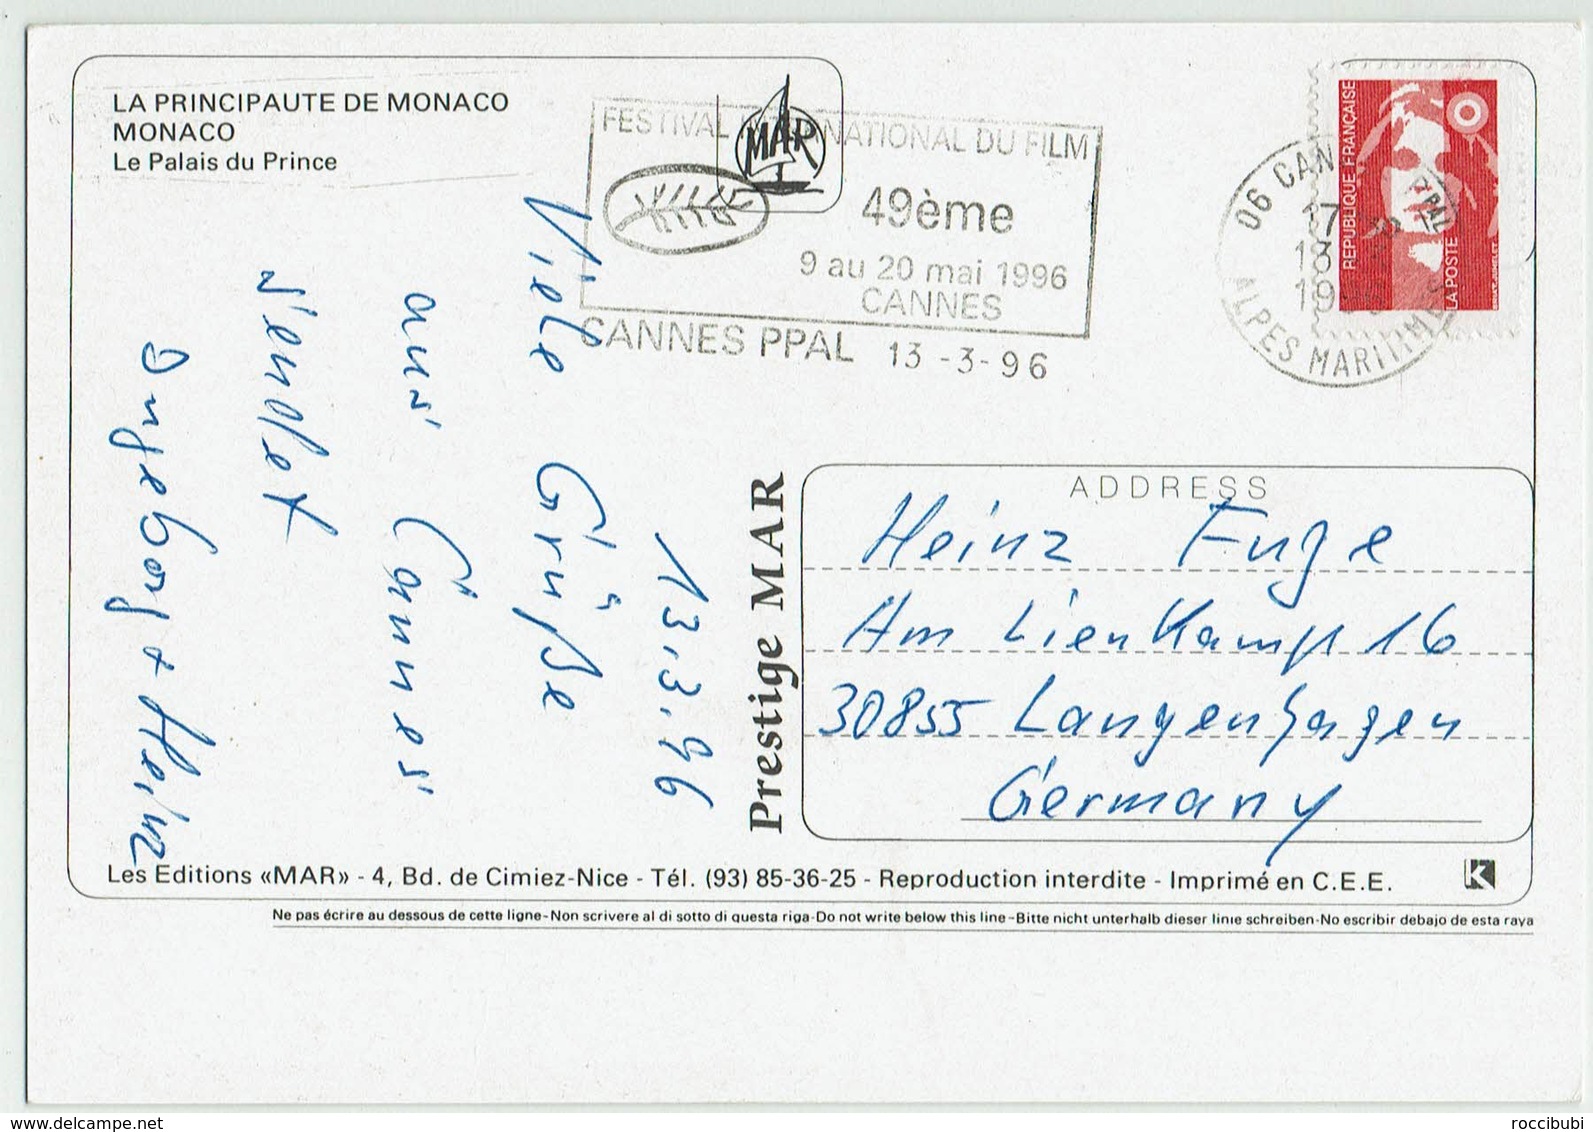 LA PRINCIPAUTE DE MONACO
MONACO
Le Palais du Prince
MAR
FESTIVAL INTERNATIONAL DU FILM
49ème
9 au 20 mai 1996
CANNES
CANNES PPAL 13-3-96
06 CAN PPAL
17
13
19
ALPES MARITIMES
REPUBLIQUE FRANÇAISE
LA POSTE
13.3.96
Viele Grüße
aus Cannes
sendet
Ingeborg + Heinz
Prestige MAR
ADDRESS
Heinz Fuge
Am Lienkamp 16
30855 Langenhagen
Germany
Les Editions «MAR» - 4, Bd. de Cimiez-Nice - Tél. (93) 85-36-25 - Reproduction interdite - Imprimé en C.E.E.
K
Ne pas écrire au dessous de cette ligne-Non scrivere al di sotto di questa riga-Do not write below this line-Bitte nicht unterhalb dieser linie schreiben-No escribir debajo de esta raya
www.delcampe.net
roccibubi